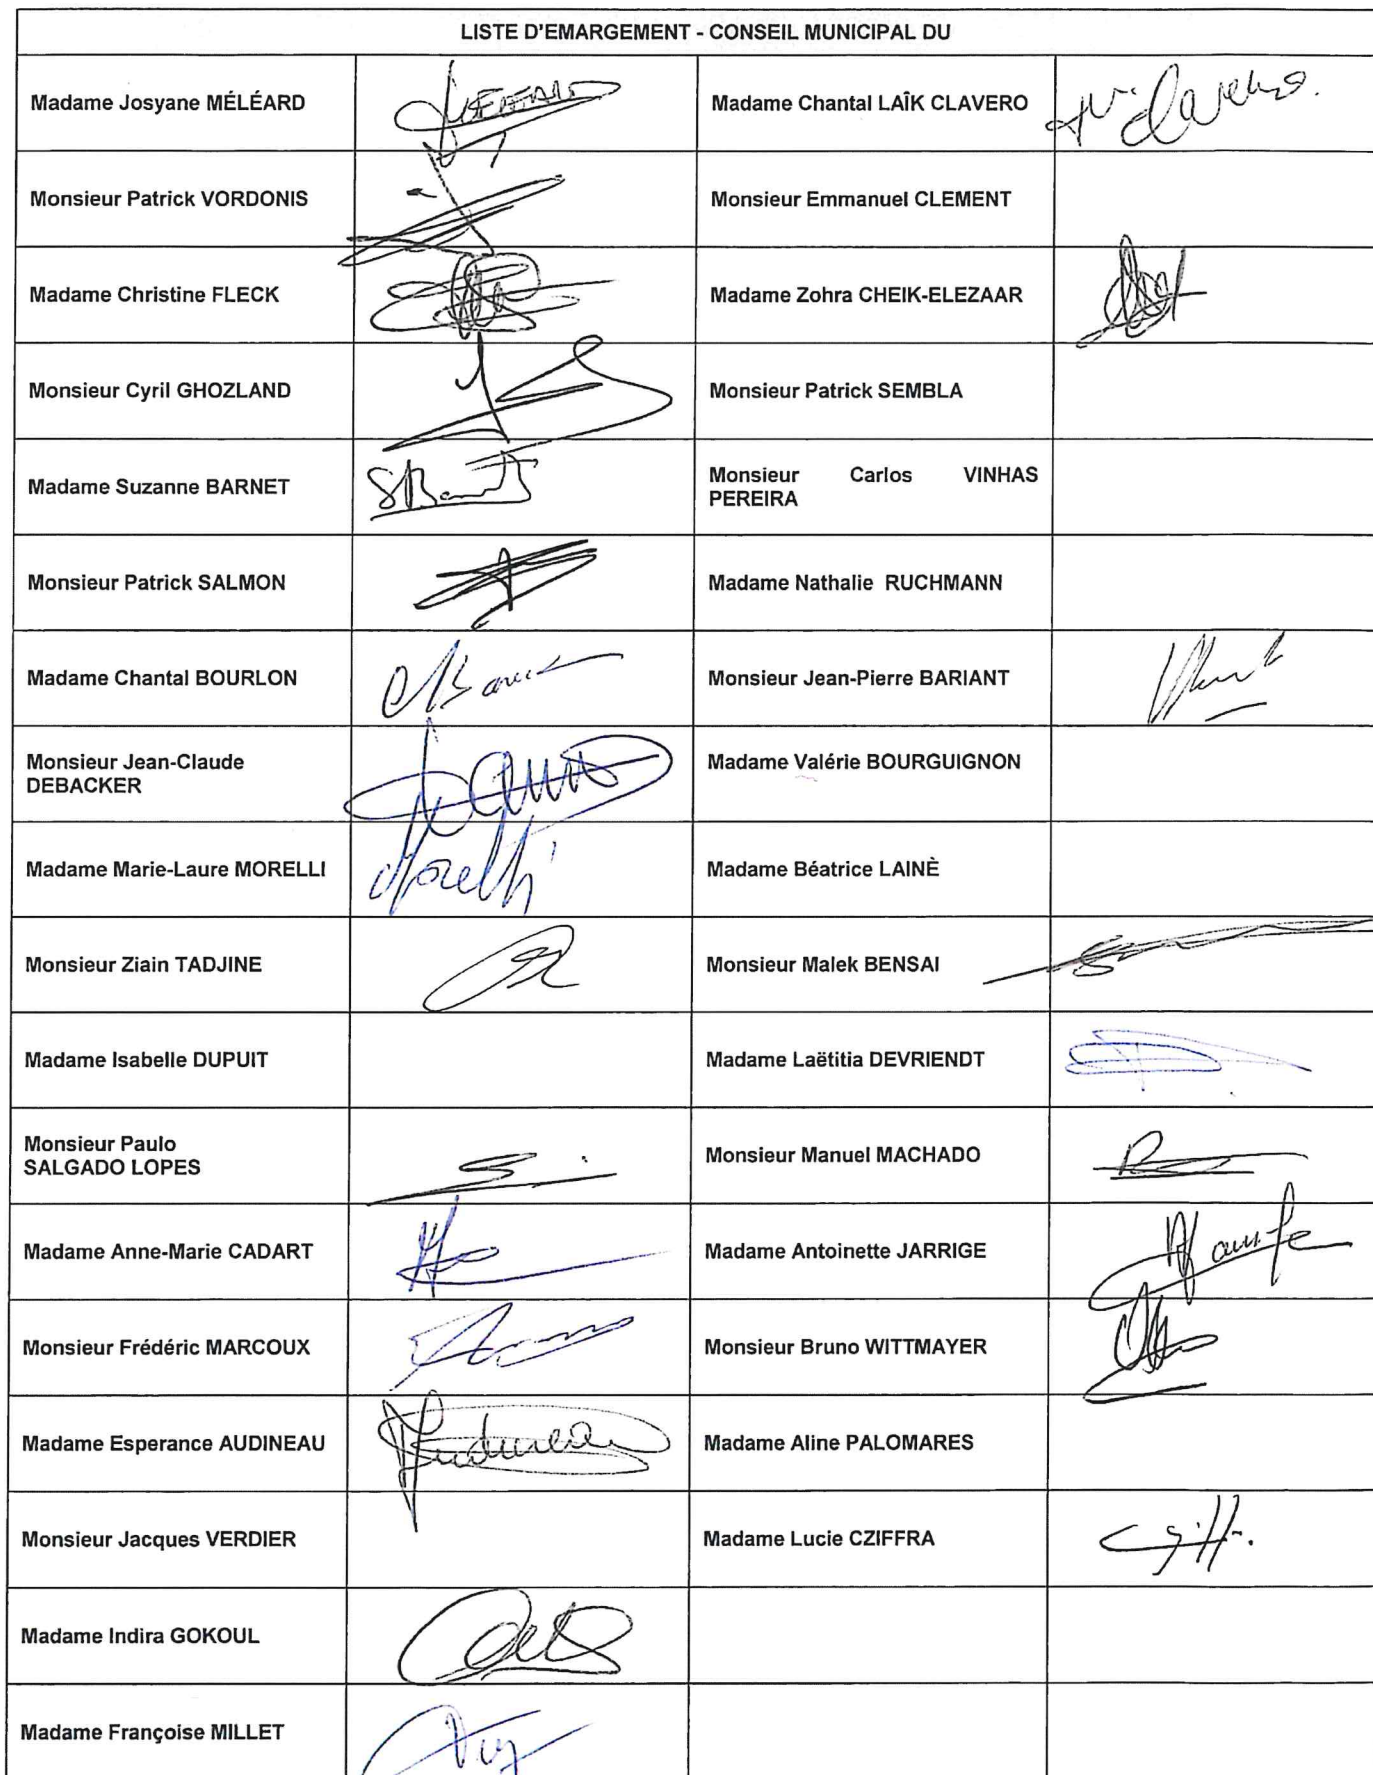 LISTE D'EMARGEMENT - CONSEIL MUNICIPAL DU
Madame Josyane MÉLÉARD
Madame Chantal LAÎK CLAVERO
Clavero
Monsieur Patrick VORDONIS
Monsieur Emmanuel CLEMENT
Madame Christine FLECK
Madame Zohra CHEIK-ELEZAAR
Monsieur Cyril GHOZLAND
Monsieur Patrick SEMBLA
Madame Suzanne BARNET
SBarnet
Monsieur Carlos VINHAS
PEREIRA
Monsieur Patrick SALMON
Madame Nathalie RUCHMANN
Madame Chantal BOURLON
Monsieur Jean-Pierre BARIANT
Monsieur Jean-Claude
DEBACKER
Madame Valérie BOURGUIGNON
Madame Marie-Laure MORELLI
Morelli
Madame Béatrice LAINÈ
Monsieur Ziain TADJINE
Monsieur Malek BENSAI
Madame Isabelle DUPUIT
Madame Laëtitia DEVRIENDT
Monsieur Paulo
SALGADO LOPES
Monsieur Manuel MACHADO
Madame Anne-Marie CADART
Madame Antoinette JARRIGE
Monsieur Frédéric MARCOUX
Monsieur Bruno WITTMAYER
Madame Esperance AUDINEAU
Audineau
Madame Aline PALOMARES
Monsieur Jacques VERDIER
Madame Lucie CZIFFRA
Madame Indira GOKOUL
Madame Françoise MILLET